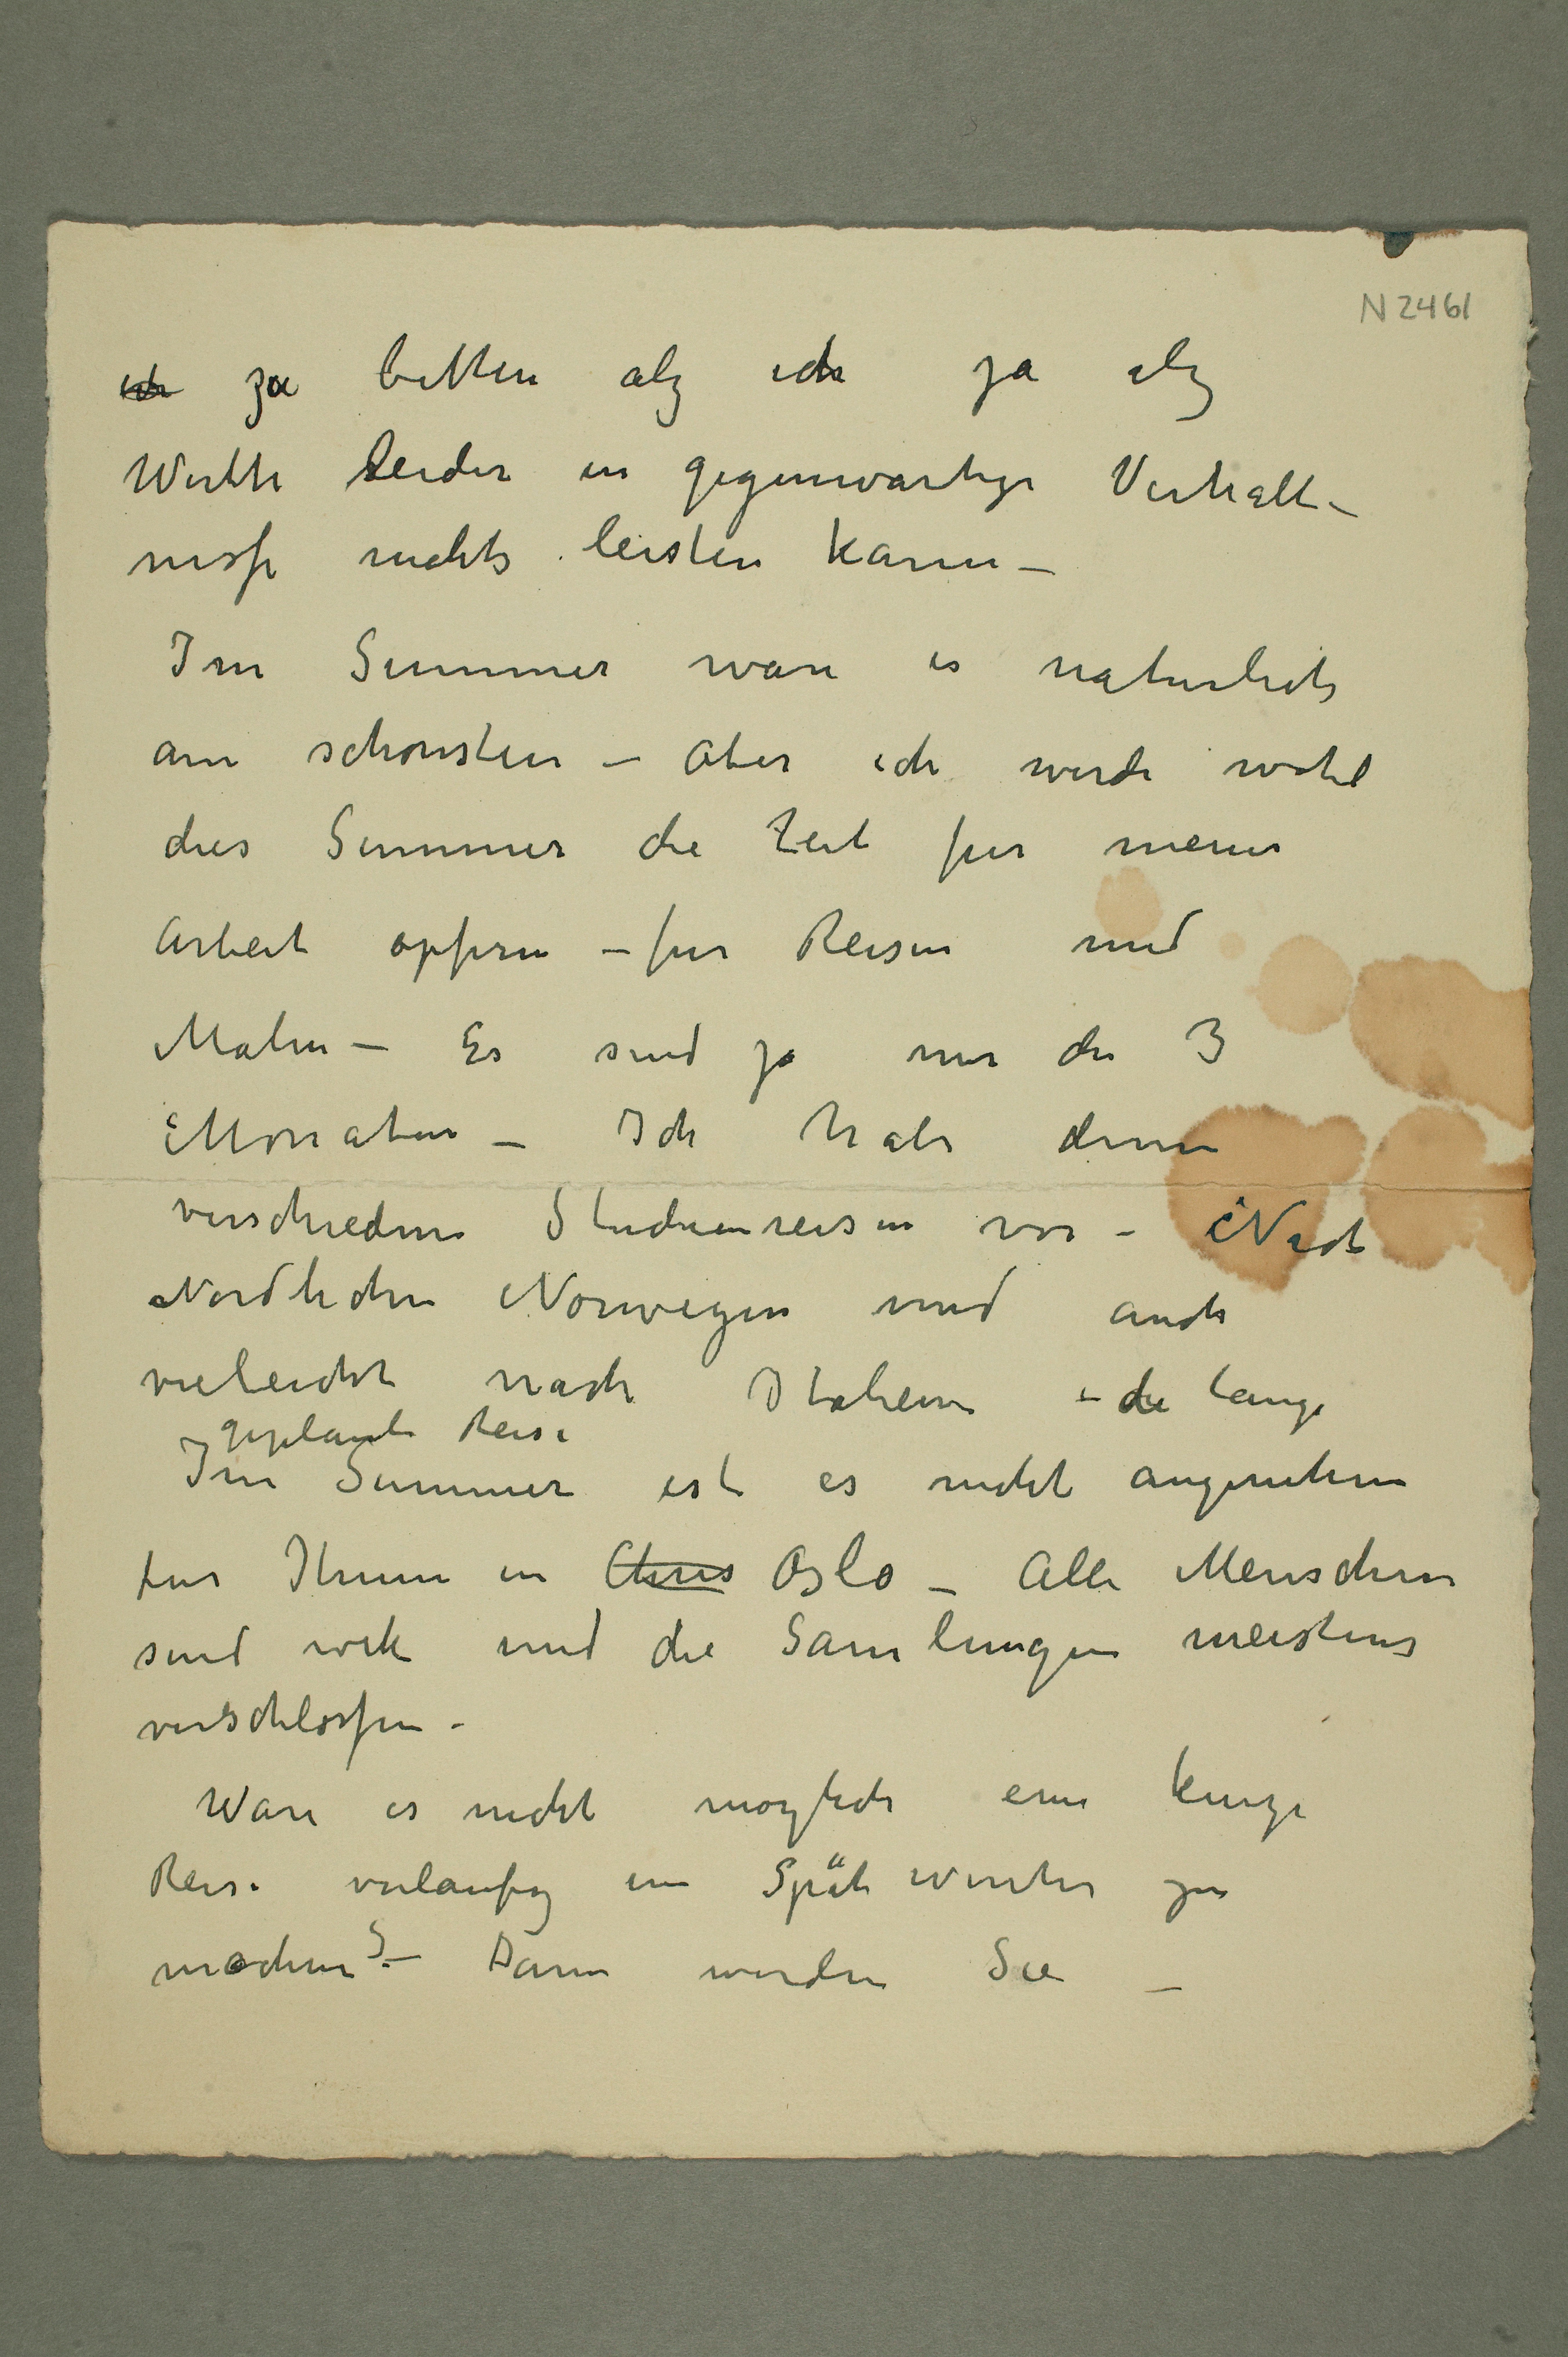 N 2461
ich zu bitten als ich ja als
Wirth leider in gegenwartige Verhält-
nisse nichts leisten kann –
Im Summer ware es naturlich
am schonsten – aber ich werde wohl
dies Summer die Zeit fur meine
Arbeit opfern – fur Reisen und
Malen – Es sind ja nur die 3
Monaten – Ich habe denn
verschiedene Studienreisen vor – Nach
Nordlichen Norwegen und auch
vieleicht nach Italien – die lange
geplante Reise
Im Summer ist es nicht angenehm
fur Ihnen in Chris Oslo – Alle Menschen
sind wek und die Samlungen meistens
verschlossen –
Ware es nicht moglich eine kurze
Reise vorlaufig im Spät winter zu
machen? – Dann werden Sie –